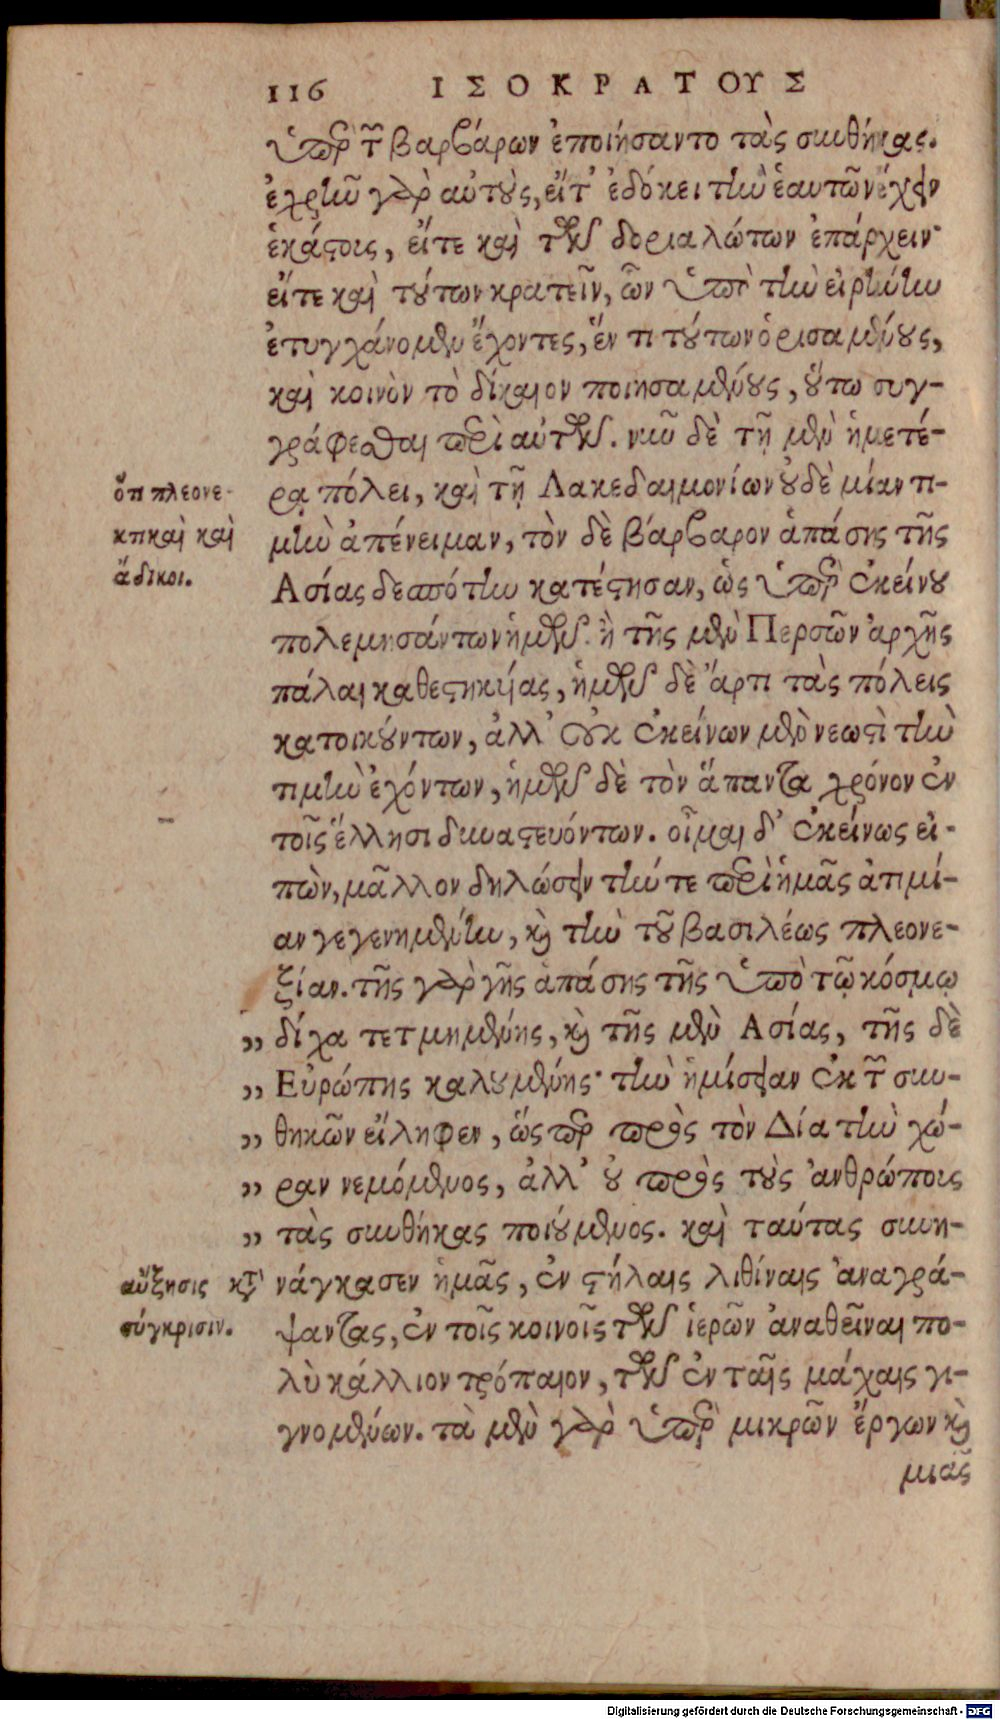 116 ΙΣΟΚΡΑΤΟΥΣ
ὑπὲρ τῶν βαρβάρων ἐποιήσαντο τὰς συνθήκας.
ἐχρῆν γὰρ αὐτοὺς, εἴτ' ἐδόκει τὴν ἑαυτῶν ἔχειν
ἑκάστοις, εἴτε καὶ τῶν δοριαλώτων ἐπάρχειν·
εἴτε καὶ τούτων κρατεῖν, ὧν ὑπὸ τὴν εἰρήνην
ἐτυγχάνομεν ἔχοντες, ἕν τι τούτων ὁρισαμένους,
καὶ κοινὸν τὸ δίκαιον ποιησαμένους, οὕτω συγ-
γράφεσθαι περὶ αὐτῶν. νῦν δὲ τῇ μὲν ἡμετέ-
ὅτι πλεονε-
κτικαὶ καὶ
ἄδικοι.
ρᾳ πόλει, καὶ τῇ Λακεδαιμονίων οὐδὲ μίαν τι-
μὴν ἀπένειμαν, τὸν δὲ βάρβαρον ἁπάσης τῆς
Ἀσίας δεσπότην κατέστησαν, ὡς ὑπὲρ ἐκείνου
πολεμησάντων ἡμῶν. ἢ τῆς μὲν Περσῶν ἀρχῆς
πάλαι καθεστηκυίας, ἡμῶν δὲ ἄρτι τὰς πόλεις
κατοικούντων, ἀλλ' οὐκ ἐκείνων μὲν νεωστὶ τὴν
τιμὴν ἐχόντων, ἡμῶν δὲ τὸν ἅπαντα χρόνον ἐν
τοῖς ἕλλησι δυναστευόντων. οἶμαι δ' ἐκείνως εἰ-
πὼν, μᾶλλον δηλώσειν τήν τε περὶ ἡμᾶς ἀτιμί-
αν γεγενημένην, καὶ τὴν τοῦ βασιλέως πλεονε-
ξίαν. τῆς γὰρ γῆς ἁπάσης τῆς ὑπὸ τῷ κόσμῳ
„ δίχα τετμημένης, καὶ τῆς μὲν Ἀσίας, τῆς δὲ
„ Εὐρώπης καλουμένης· τὴν ἡμίσειαν ἐκ τῶν συν-
„ θηκῶν εἴληφεν, ὥσπερ πρὸς τὸν Δία τὴν χώ-
„ ραν νεμόμενος, ἀλλ' οὐ πρὸς τοὺς ἀνθρώποις
„ τὰς συνθήκας ποιούμενος. καὶ ταύτας συνη-
αὔξησις κατὰ
σύγκρισιν.
νάγκασεν ἡμᾶς, ἐν στήλαις λιθίναις ἀναγρά-
ψαντας, ἐν τοῖς κοινοῖς τῶν ἱερῶν ἀναθεῖναι πο-
λὺ κάλλιον τρόπαιον, τῶν ἐν ταῖς μάχαις γι-
γνομένων. τὰ μὲν γὰρ ὑπὲρ μικρῶν ἔργων καὶ
μιᾶς
Digitalisierung gefördert durch die Deutsche Forschungsgemeinschaft - DFG